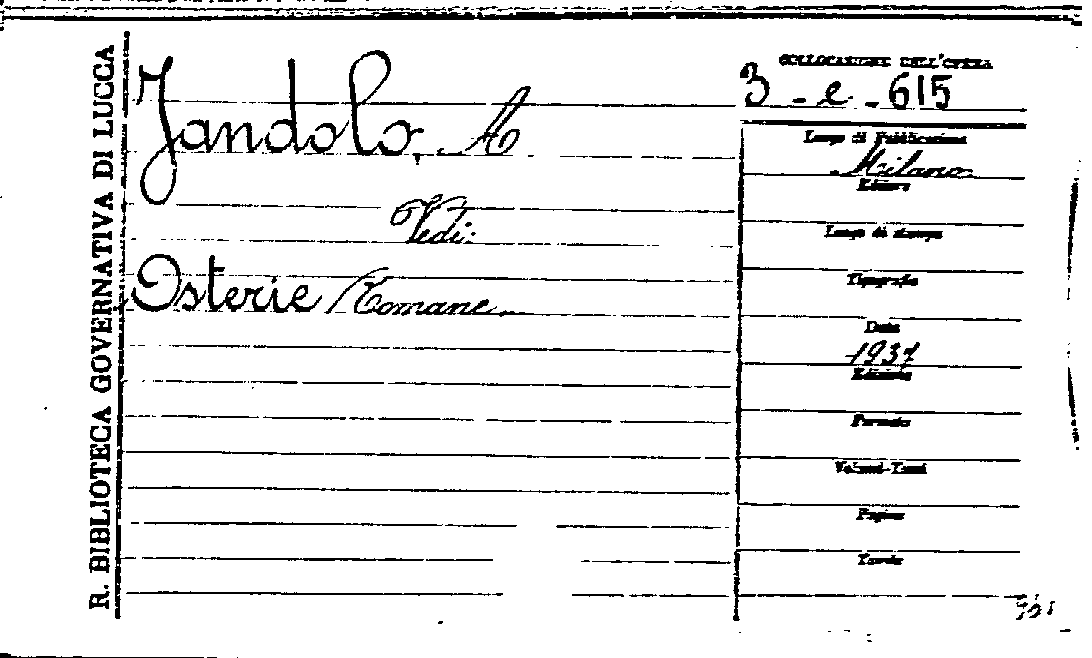 R. BIBLIOTECA GOVERNATIVA DI LUCCA
Jandolo, A
Vedi:
Osterie Romane
COLLOCAZIONE DELL'OPERA
3 - e - 615
Luogo di Pubblicazione
Milano
Editore
Luogo di stampa
Tipografia
Data
1937
Edizione
Formato
Volumi-Tomi
Pagine
Tavole